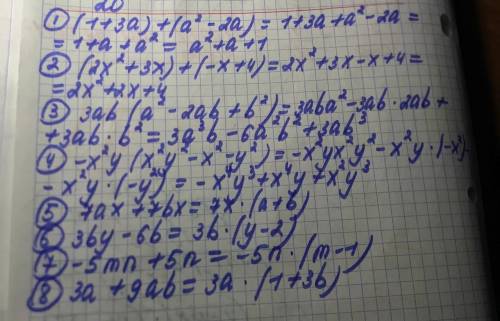 20
① (1+3a)+(a²-2a) = 1+3a+a²-2a =
= 1+a+a² = a²+a+1
② (2x²+3x)+(-x+4)=2x²+3x-x+4=
=2x²+2x+4
③ 3ab(a²-2ab+b²)=3aba²-3ab·2ab+
+3ab·b²=3a³b-6a²b²+3ab³
④ -x²y(x²y²-x²-y²)=-x²yx²y²-x²y·(-x²)-
-x²y·(-y²)=-x⁴y³+x⁴y+x²y³
⑤ 7ax+7bx=7x·(a+b)
⑥ 3by-6b=3b·(y-2)
⑦ -5mn+5n=-5n·(m-1)
⑧ 3a+9ab=3a·(1+3b)